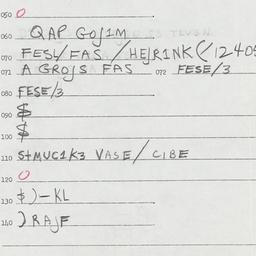 050 0
060 QAP GOJ1M
070 FESL/FAS / HEJR1NK (/1240
071 A GROJS FAS 072 FESE/3
080 FESE/3
090 $
100 $
110 S+MUC1K3 VASE/ C1BE
120 0
130 $)-KL
140 )RAJF